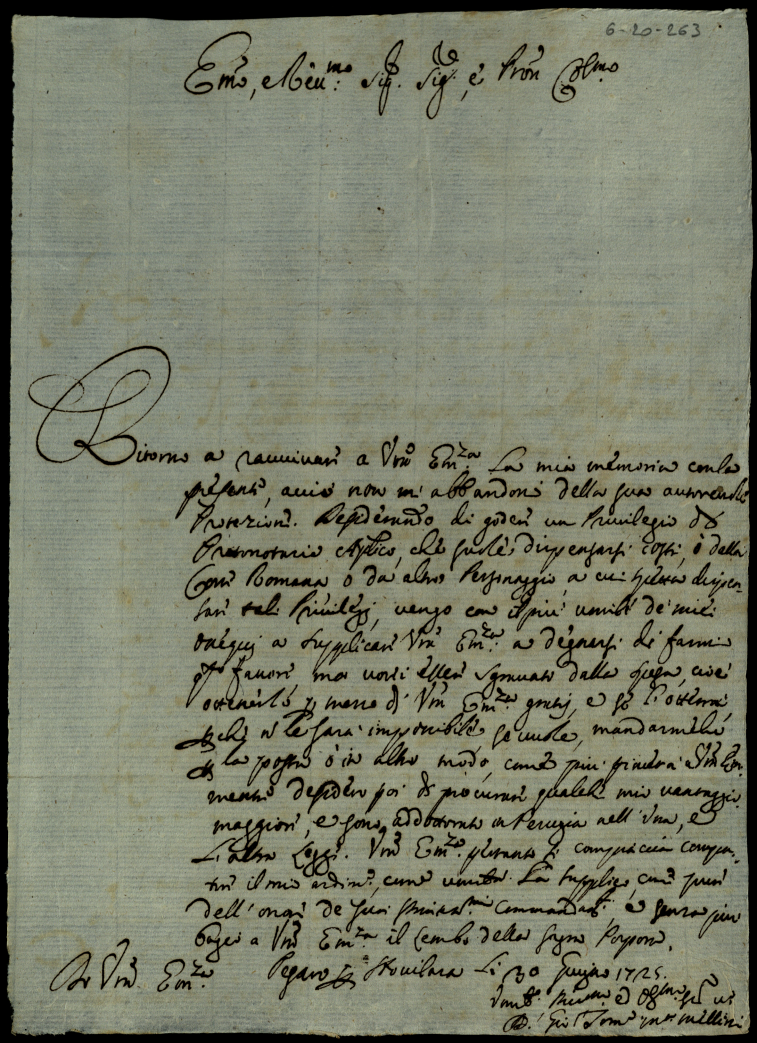 6-20-263
Emo, e Reu.mo Sig. Sig., e Pron Colmo
Ritorno a rauuiuare a Vra Em.za La mia memoria con la
presente, acciò non mi abbandoni della sua autoreuole
Protezione. Desiderando di godere un Priuilegio di
Protonotario Aplico, che suole dispensarsi costì, ò dalla
Corte Romana ò da altro Personaggio, a cui spetta dispen-
sare tali Priuilegj, vengo con il più umile de miei
ossequj a supplicare Vra Em.za a degnarsi di farmi
qto fauore, ma vorrei essere sgrauato dalla spesa, cioè
ottenerlo p mezzo di Vra Em.za gratis, e se l'otterrà,
che nè le sarà impossibile se uuole, mandarmelo
p la posta ò in altro modo, come più piacerà a Vra Em.
mentre desidero poi di procurare qualche mio vantaggio
maggiore, e sono addottorato in Perugia nell' una, e
L'altra Legge. Vra Em.za pertanto si compiaccia compa-
tire il mio ardire, come umilte La supplico, come pure
dell' onore de suoi stimat.mi Commandati, e senza più
bagio a Vra Em.za il Lembo della Sagra Porpora.
Di Vra Em.za Pesaro p Nouilara Li 30 Giugno 1725.
Vmilo. e Obbmo
D. Gio